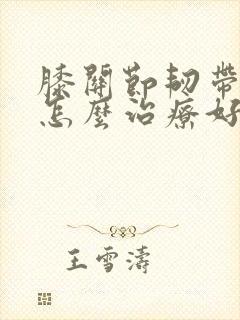 膝關節韌帶
怎麼治療好
王雪濤